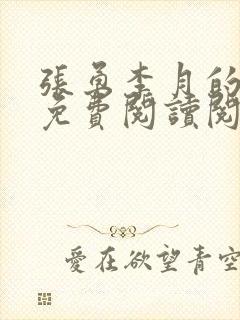 張勇李月的
免費閱讀閱
愛在欲望青空